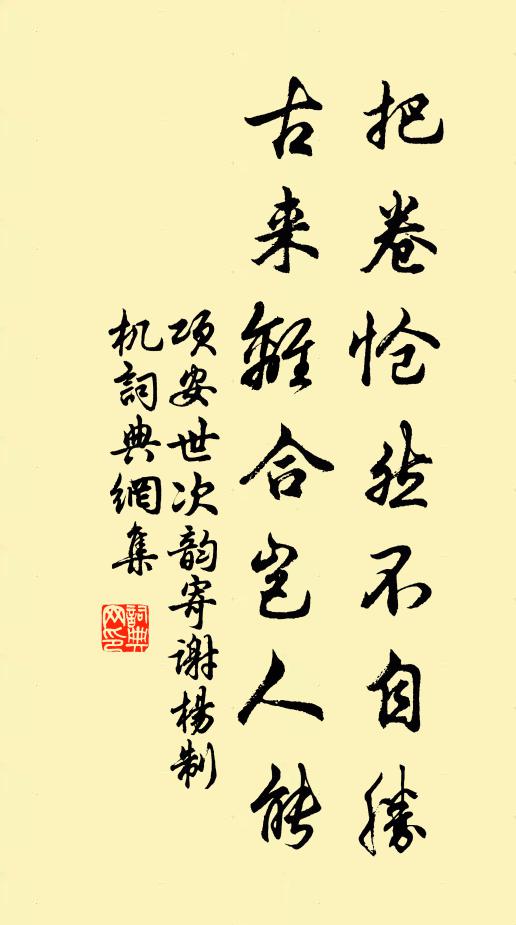 把卷怆然不自勝
古来離合岂人能
项安世次韵寄谢楊制
机詞典網集
詞典
网印